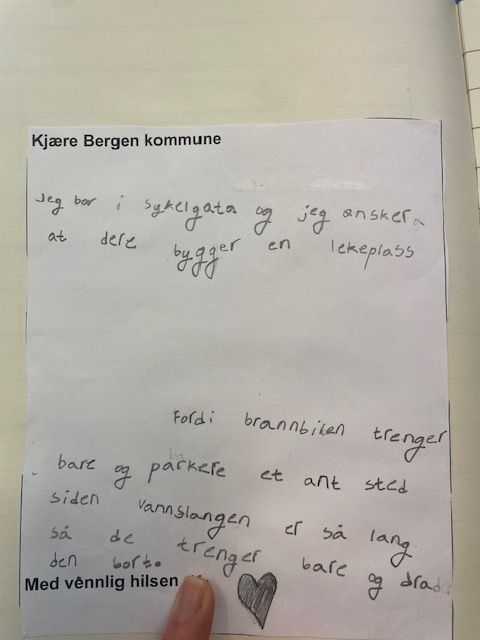 Kjære Bergen kommune
Jeg bor i sykelgata og jeg ansker
at dere bygger en lekeplass
Fordi brannbilen trenger
bare og parkere et ant sted
siden vannslangen er så lang
så de trenger bare og drade
den bort.
Med vênnlig hilsen